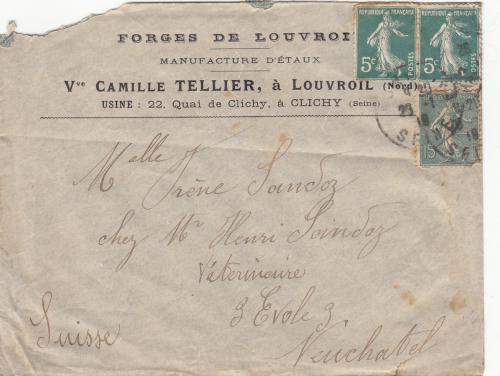 FORGES DE LOUVROI
MANUFACTURE D'ÉTAUX
Vve CAMILLE TELLIER, à LOUVROIL (Nord)
USINE : 22, Quai de Clichy, à CLICHY (Seine)
REPUBLIQUE FRANÇAISE
5c
POSTES
REPUBLIQUE FRANÇAISE
5c
POSTES
15
Melle Irène Sandoz
chez Mr Henri Sandoz
Véterinaire
3 Evole 3
Neuchatel
Suisse